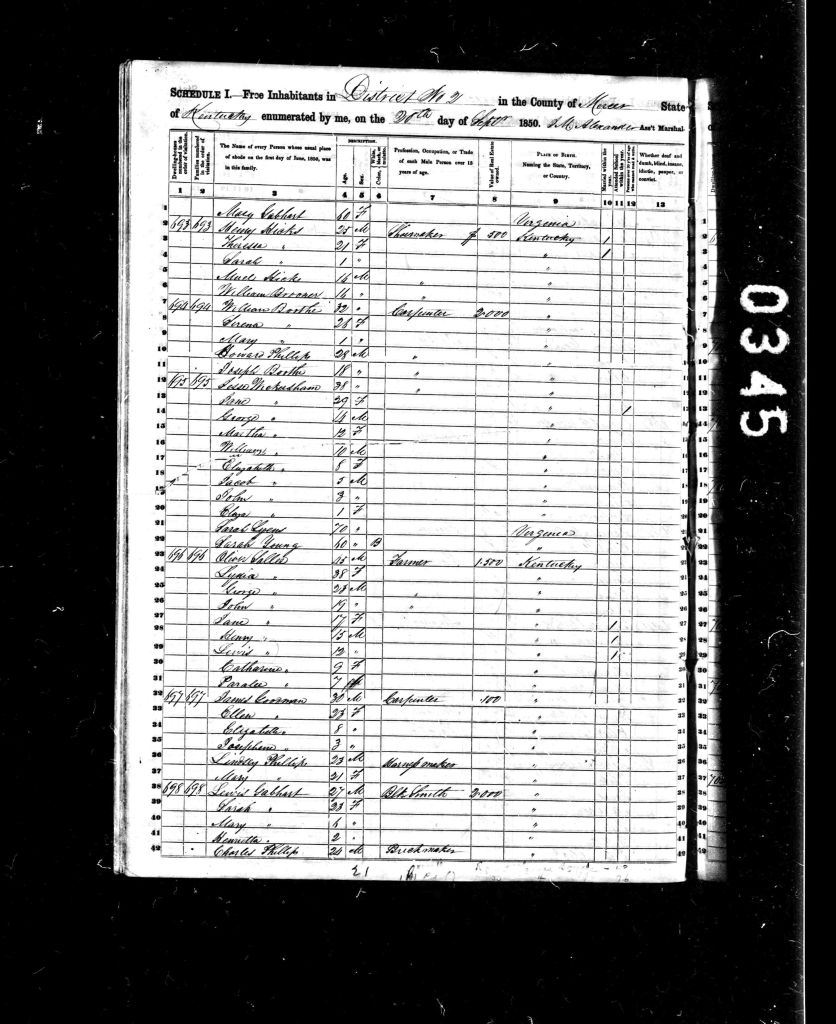 SCHEDULE I.—Free Inhabitants in District No 2 in the County of Mercer State
of Kentucky enumerated by me, on the 20th day of Sept 1850. Alexander Ass't Marshal.
Dwelling-houses numbered in the order of visitation.
Families numbered in the order of visitation.
The Name of every Person whose usual place of abode on the first day of June, 1850, was in this family.
DESCRIPTION.
Age.
Sex.
Color, White, black, or mulatto.
Profession, Occupation, or Trade of each Male Person over 15 years of age.
Value of Real Estate owned.
PLACE OF BIRTH. Naming the State, Territory, or Country.
Married within the year.
Attended School within the year.
Whether deaf and dumb, blind, insane, idiotic, pauper, or convict.
1 2 3 4 5 6 7 8 9 10 11 12 13
1 Mary Gabhart 60 F Virginia 1
2 693 693 Henry Hicks 25 M Shoemaker 500 Kentucky 1 2
3 Theressa " 21 F " 1 3
4 Sarah " 1 " " 4
5 Hicks 16 M " " 5
6 William 16 " " " 6
7 694 694 William Boothe 32 " Carpenter 2000 " 7
8 Serena " 26 F " 8
9 Mary " 1 " " 9
10 Howard Phillips 28 M " " 10
11 Joseph Boothe 18 " " " 11
12 695 695 Wickersham 38 " " " 12
13 Jane " 29 F " 1 13
14 George " 14 M " 14
15 Martha " 12 F " 15
16 William " 10 M " 16
17 Elizabeth " 8 F " 17
18 Jacob " 5 M " 18
19 John " 3 " " 19
20 Eliza " 1 F " 20
21 Sarah Lyens 70 " Virginia 21
22 Sarah Young 60 " B " 22
23 696 696 Oliver 45 M Farmer 1500 Kentucky 23
24 38 F " 24
25 George " 21 M " " 25
26 John " 19 " " " 26
27 Jane " 17 F " 1 27
28 Henry " 15 M " 1 28
29 Lewis " 12 " " 1 29
30 Catharine " 9 F " 30
31 " 7 " 31
32 697 697 James 30 M Carpenter 100 " 32
33 Ellen " 23 F " 33
34 Elizabeth " 8 " " 34
35 Josephine " 3 " " 35
36 Lindsey Phillips 23 M Harness maker " 36
37 Mary " 21 F " 37
38 698 698 Lewis Gabhart 27 M Blk Smith 2000 " 38
39 Sarah " 23 F " 39
40 Mary " 6 " " 40
41 Henrietta " 2 " " 41
42 Charles Phillips 24 M Brickmaker " 42
21
0345